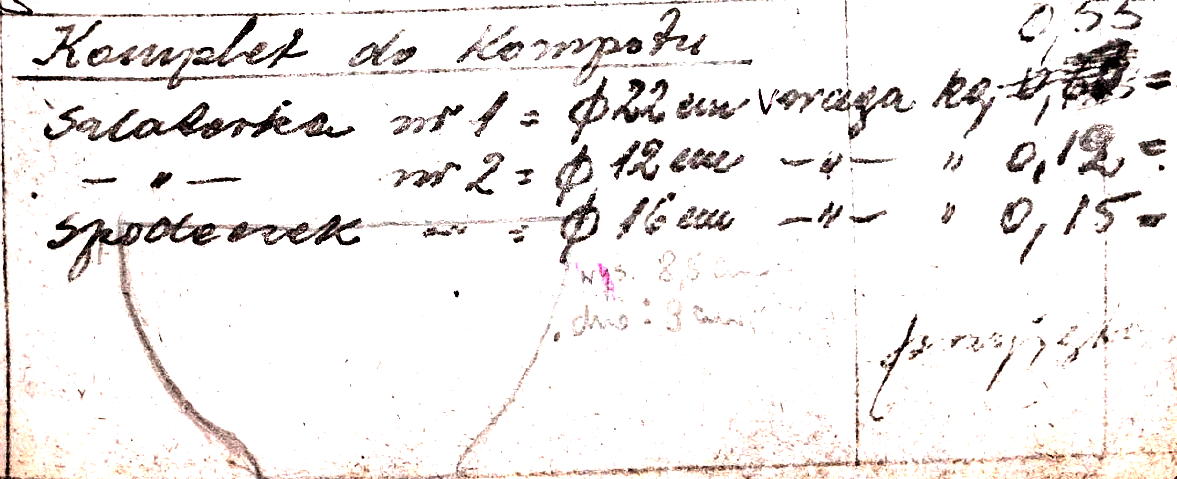 0,55
Komplet do Kompotu
Salaterka nr 1 = φ 22 cm waga kg, =
— „ — nr 2 = φ 12 cm — „ — „ 0,12 =
Spodeczek — = φ 16 cm — „ — „ 0,15 =
wys. 8,5 cm
dno: 9 cm